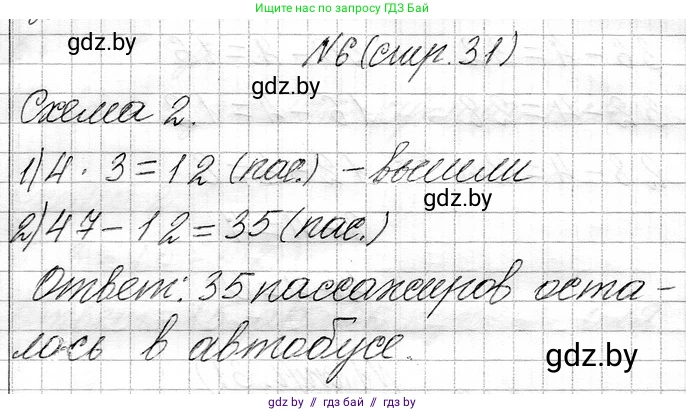 Ищите нас по запросу ГДЗ Бай
gdz.by
№6 (стр. 31)
gdz.by
Схема 2.
1) 4 · 3 = 12 (пас.) - вышли
gdz.by
2) 47 - 12 = 35 (пас.)
Ответ: 35 пассажиров оста-
лось в автобусе.
gdz.by
gdz.by // гдз бай // gdz.by